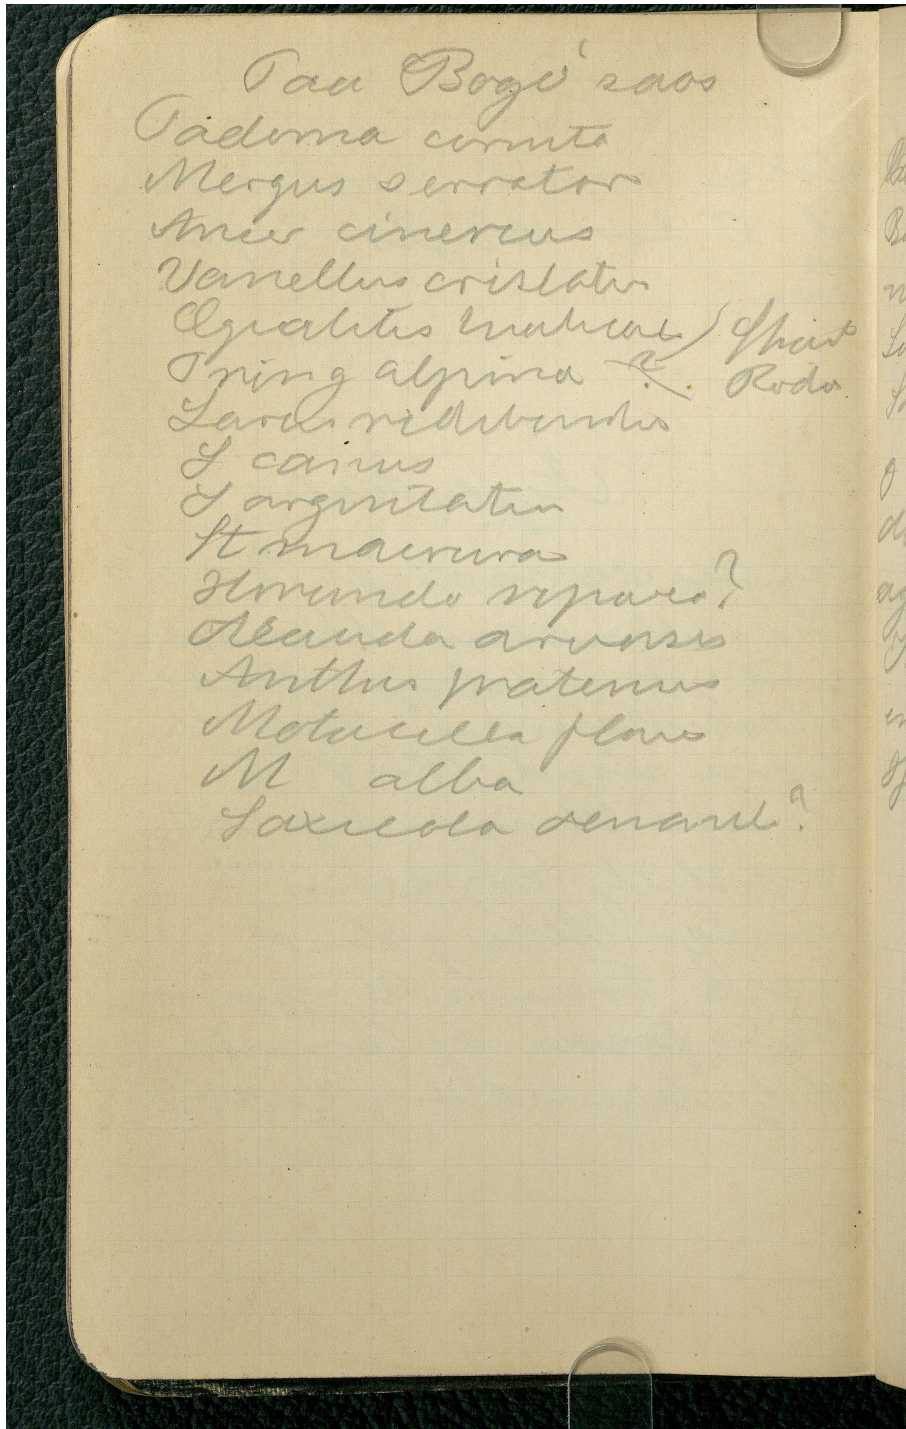 Paa Bogö saas
Tadorna cornuta
Mergus serrator
Anser cinereus
Vanellus cristatus
Ægialitis hiaticula
Tringa alpina ?
Larus ridibundus
L canus
L argentatus
St macrura
Hirundo riparia?
Alauda arvensis
Anthus pratensis
Motacilla flava
M alba
Saxicola oenanth?